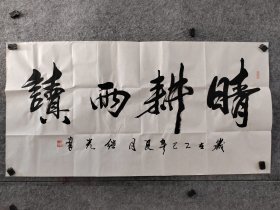 晴耕雨讀
歲在乙巳年夏月德光書